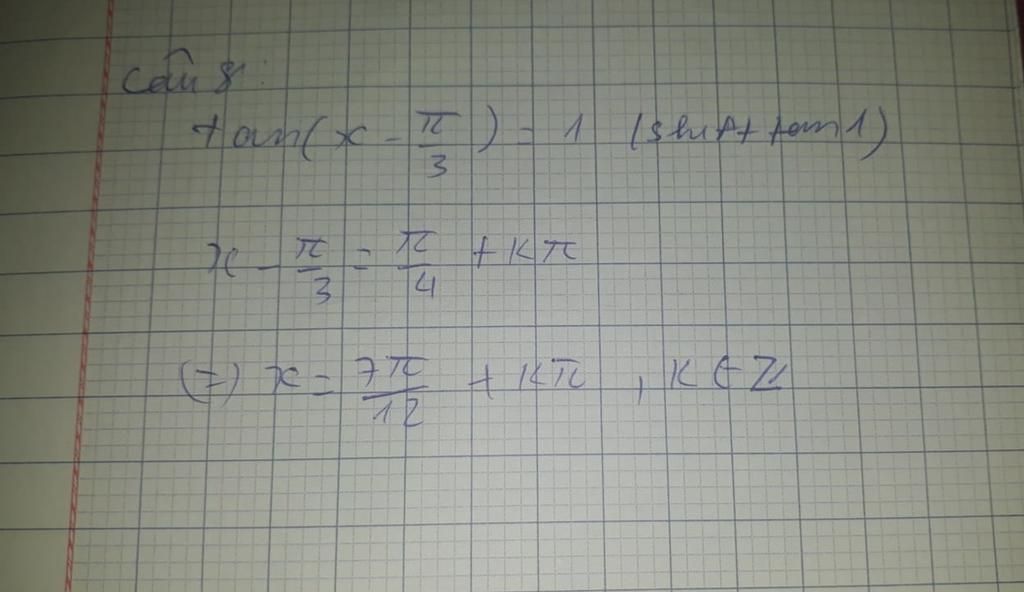 Câu 8:
tan(x - π/3) = 1 (shift tan 1)
x - π/3 = π/4 + kπ
(=) x = 7π/12 + kπ , k ∈ Z